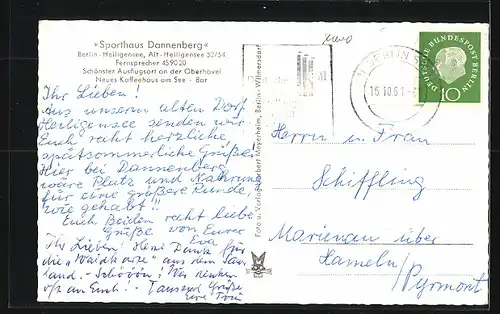 »Sporthaus Dannenberg«
Berlin-Heiligensee, Alt-Heiligensee 52/54
Fernsprecher 459020
Schönster Ausflugsort an der Oberhavel
Neues Kaffeehaus am See - Bar
Ihr Lieben!
Aus unserm alten Dorf
Heiligensee senden wir
Euch recht herzliche
spätsommerliche Grüße.
Hier bei Dannenberg
wäre Platz und Nahrung
für eine größere Runde,
wie gehabt!!
Euch Beiden recht liebe
Grüße von Eurer
Eva
Ihr Lieben! Dank für
die aus dem
land. - Schööön! Wir denken
oft an Euch! - Tausend Grüße
Eure
Foto u. Verlag: Robert Meyerheim, Berlin-Wilmersdorf
BERLIN
15.10.61
DEUTSCHE BUNDESPOST BERLIN
10
Herrn u. Frau
Schiffling
Marienau über
Hameln/
Pyrmont